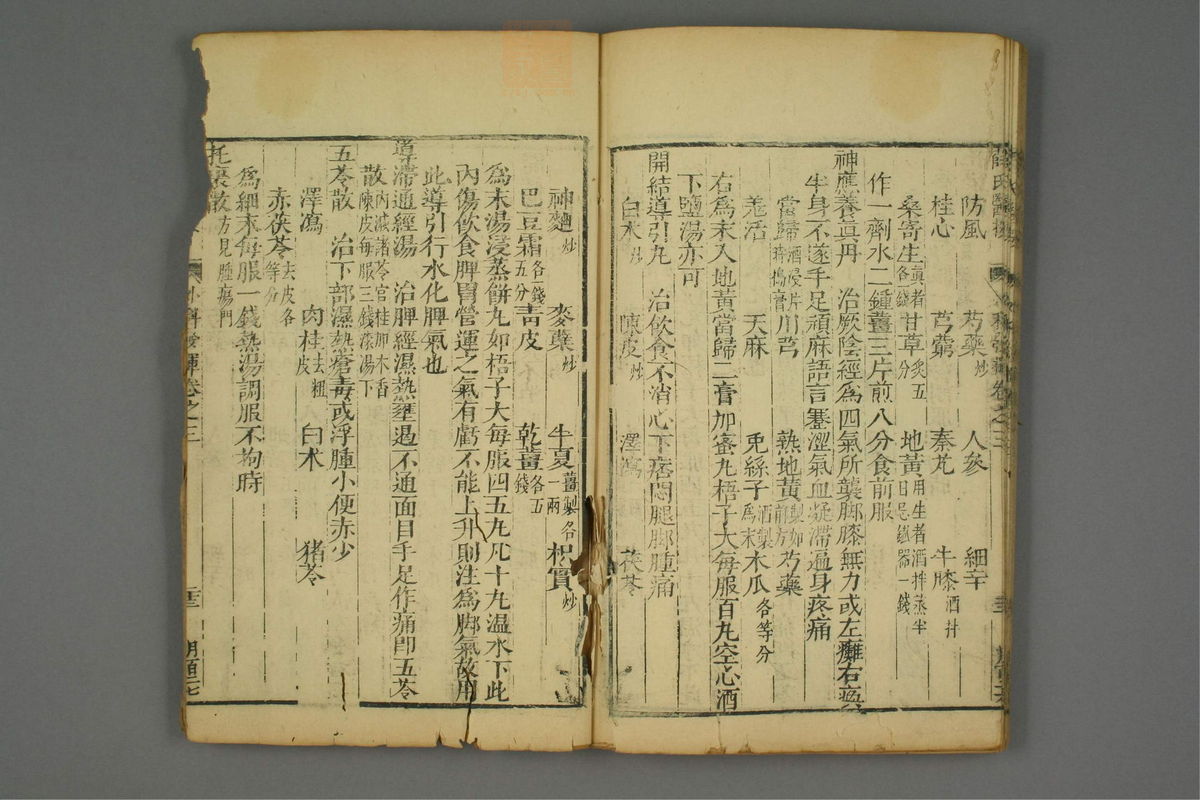 防風 芍藥炒 人參 細辛
桂心 芎藭 秦艽 牛膝酒拌
桑寄生眞者各一錢 甘草炙五分 地黃用生者酒拌蒸半日忌鐵器一錢
作一劑水二鍾薑三片煎八分食前服
神應養眞丹 治厥陰經爲四氣所襲脚膝無力或左癱右瘓
半身不遂手足頑麻語言蹇澀氣血凝滯遍身疼痛
當歸酒浸片時搗膏 川芎 熟地黃製如前方 芍藥
羌活 天麻 兎絲子酒製爲末 木瓜各等分
右爲末入地黃當歸二膏加蜜丸梧子大每服百丸空心酒
下鹽湯亦可
開結導引丸 治飲食不消心下痞悶腿脚腫痛
白朮炒 陳皮炒 澤瀉 茯苓
神麯炒 麥蘖炒 半夏薑製各一兩 枳實炒
巴豆霜各一錢五分 靑皮 乾薑各五錢
爲末湯浸蒸餅丸如梧子大每服四五丸凡十九温水下此
內傷飲食脾胃營運之氣有虧不能上升則注爲脚氣故用
此導引行水化脾氣也
導滯通經湯 治脾經濕熱壅遏不通面目手足作痛卽五苓
散內減諸苓官桂加木香陳皮每服三錢滾湯下
五苓散 治下部濕熱瘡毒或浮腫小便赤少
澤瀉 肉桂去粗皮 白术 猪苓
赤茯苓去皮各等分
爲細末每服一錢熱湯調服不拘時
托裏散方見腫瘍門
外科發揮卷之三